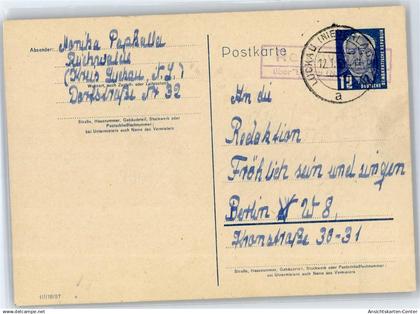 Absender: Monika Paphalla
(Kreis Luckau, N.L.)
Wohnort, auch Zustell- oder Leitpostamt
Dorfstraße Nr 32
Straße, Hausnummer, Gebäudeteil, Stockwerk oder Postschließfachnummer;
bei Untermietern auch Name des Vermieters
Postkarte
LUCKAU (NIEDERLAUSITZ)
a
12
An die
Redaktion
Fröhlich sein und singen
Berlin W 8,
Kronstraße 30-31
Straße, Hausnummer, Gebäudeteil, Stockwerk oder Postschließfachnummer;
bei Untermietern auch Name des Vermieters
III/18/97
www.Ansichtskarten-Center.de
Ansichtskarten-Center